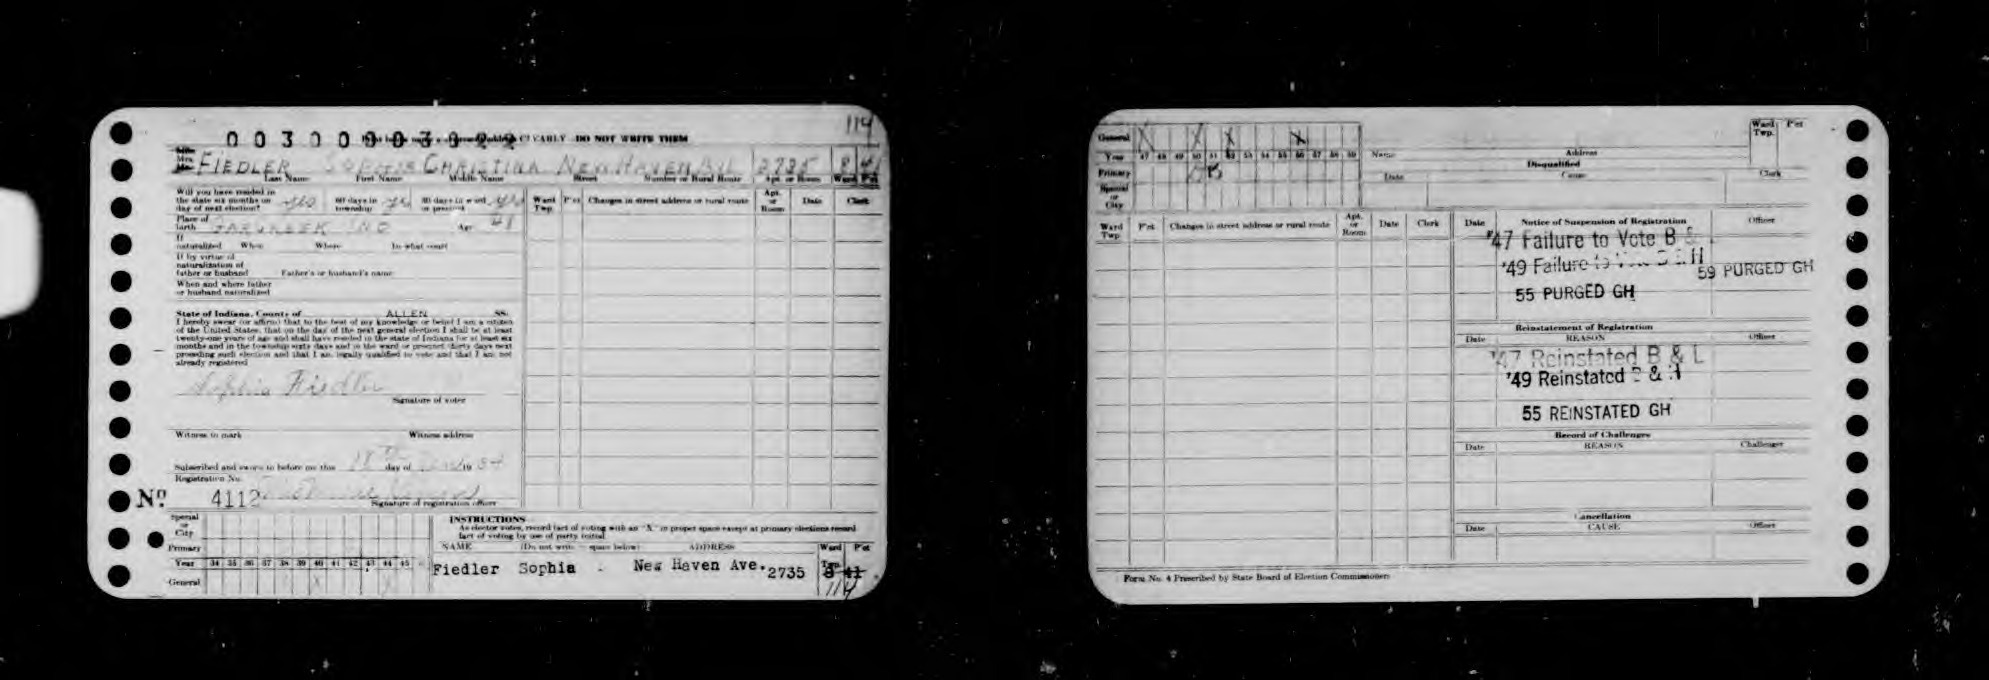 DO NOT WRITE THEM
114
FIEDLER SOPHIE CHRISTINA NEW HAVEN AV. 2735 8 41
Last Name First Name Middle Name Street Number or Rural Route Apt. or Room Ward P'ct
Will you have resided in
the state six months on yes 60 days in yes 30 days in ward yes
day of next election? township or precinct
Place of
birth Age 41
If
naturalized When Where In what court
If by virtue of
naturalization of
father or husband Father's or husband's name
When and where father
or husband naturalized
State of Indiana, County of ALLEN SS:
I hereby swear (or affirm) that to the best of my knowledge or belief I am a citizen
of the United States, that on the day of the next general election I shall be at least
twenty-one years of age and shall have resided in the state of Indiana for at least six
months and in the township sixty days and in the ward or precinct thirty days next
preceding such election and that I am legally qualified to vote and that I am not
already registered
Sophia Fiedler
Signature of voter
Witness to mark Witness address
Subscribed and sworn to before me this 18th day of 1934
Registration No.
No. 4112
Signature of registration officer
Ward Twp. P'ct Changes in street address or rural route Apt. or Room Date Clerk
Special
or
City
Primary
Year 34 35 36 37 38 39 40 41 42 43 44 45
General X
INSTRUCTIONS
As elector votes, record fact of voting with an "X" in proper space except at primary elections record
fact of voting by use of party initial
NAME (Do not write in space below) ADDRESS Ward Twp. P'ct
Fiedler Sophia New Haven Ave. 2735 8 41
114
General X X X X
Year 47 48 49 50 51 52 53 54 55 56 57 58 59
Primary
Special
or
City
Name Address
Ward Twp. P'ct
Disqualified
Date Cause Clerk
Ward Twp. P'ct Changes in street address or rural route Apt. or Room Date Clerk
Date Notice of Suspension of Registration Officer
'47 Failure to Vote B & L
'49 Failure to Vote B & H
59 PURGED GH
55 PURGED GH
Reinstatement of Registration
Date REASON Officer
'47 Reinstated B & L
'49 Reinstated B & H
55 REINSTATED GH
Record of Challenges
Date REASON Challenger
Cancellation
Date CAUSE Officer
Form No. 4 Prescribed by State Board of Election Commissioners